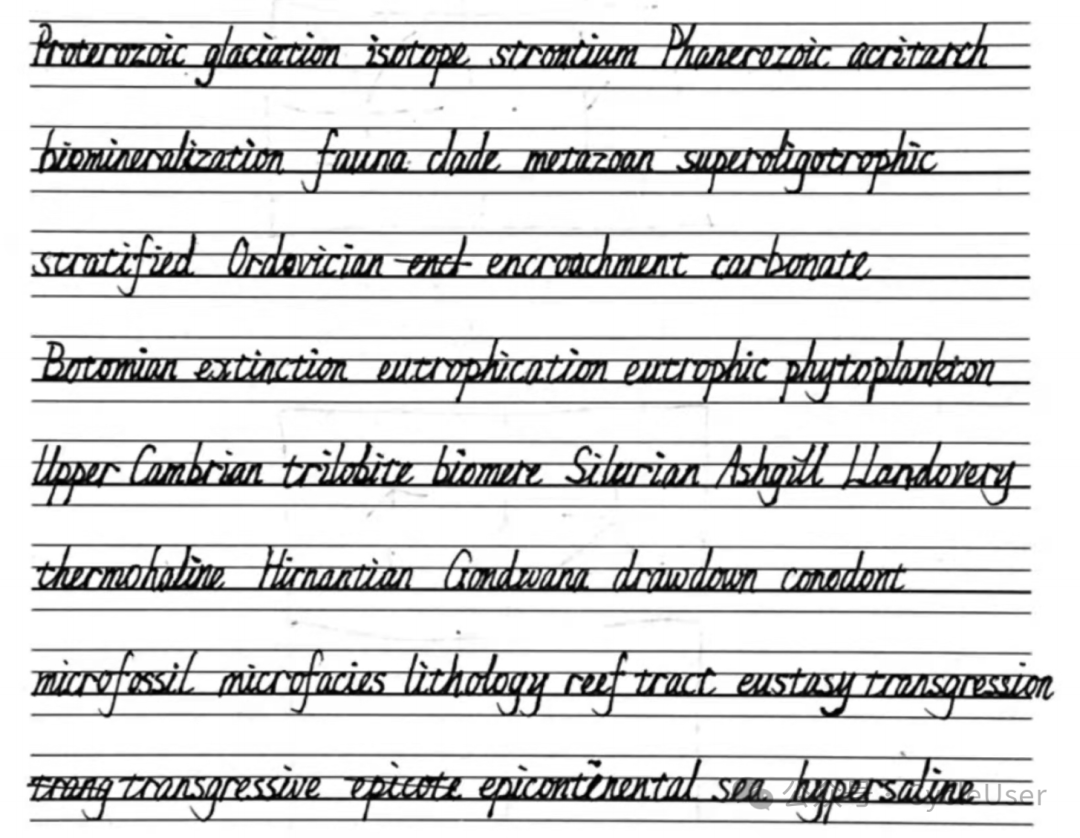 Proterozoic glaciation isotope strontium Phanerozoic acritarch
biomineralization fauna clade metazoan superoligotrophic
stratified Ordovician enct encroachment carbonate
Botomian extinction eutrophication eutrophic phytoplankton
Upper Cambrian trilobite biomere Silurian Ashgill Llandovery
thermohaline Hirnantian Gondwana drawdown conodont
microfossil microfacies lithology reef tract eustasy transgression
trang transgressive epicote epicontenental sea hypersaline